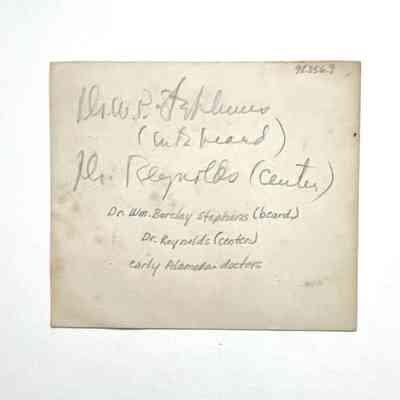 98.356.9
Dr. W. B. Stephens
(with beard)
Dr. Reynolds (center)
Dr. Wm. Barclay Stephens (beard)
Dr. Reynolds (center)
early Alameda doctors